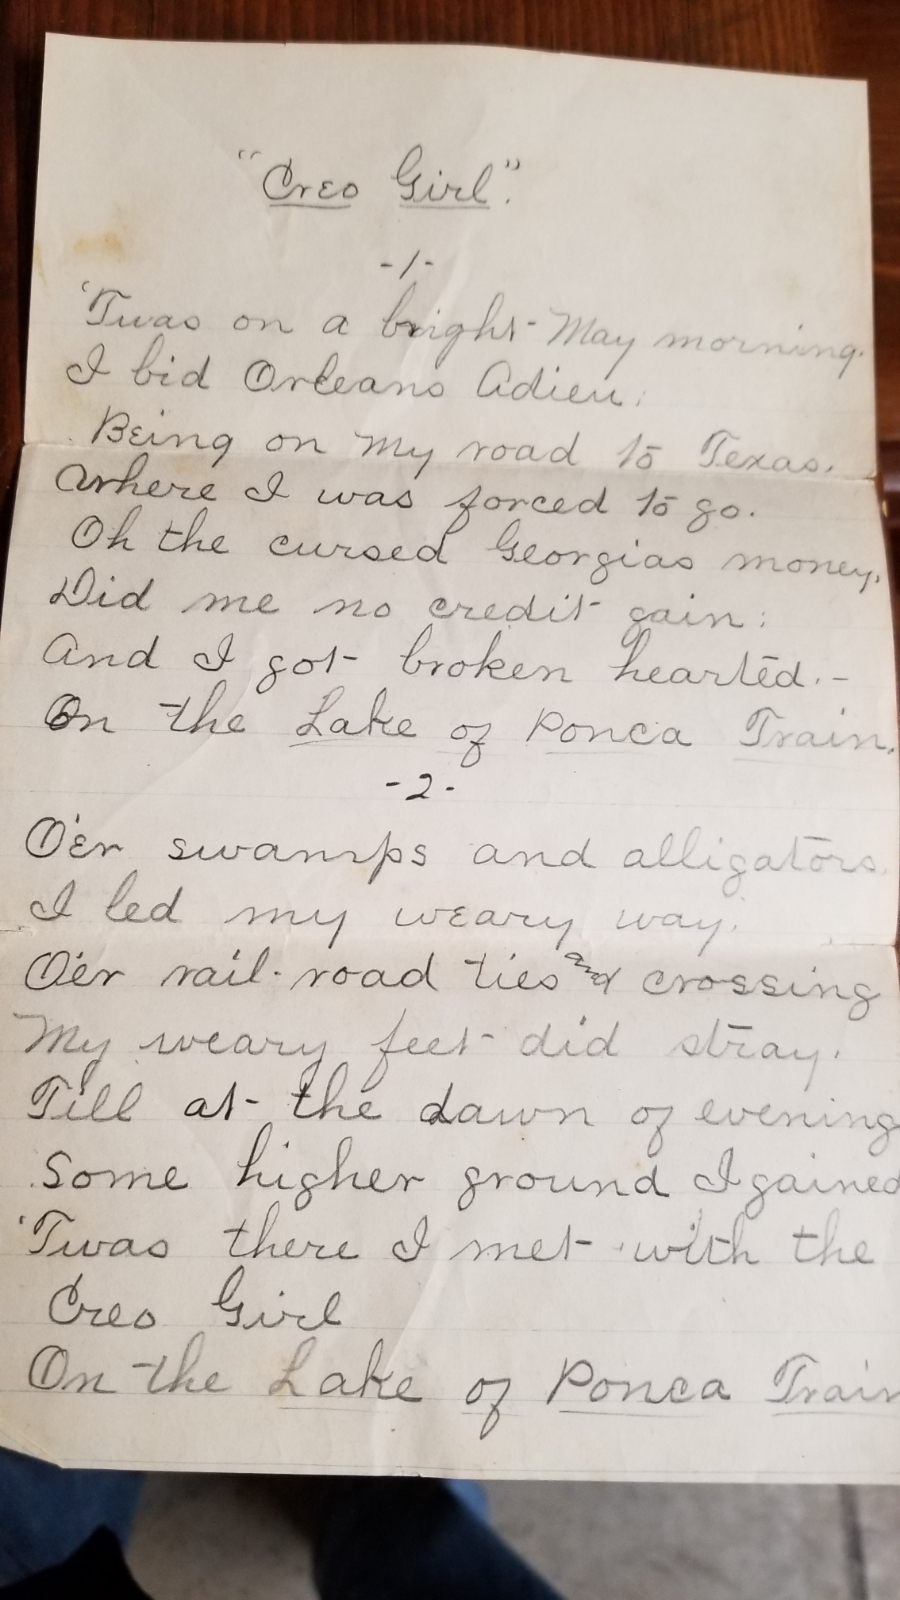 "Creo Girl".
-1-
'Twas on a bright May morning.
I bid Orleans Adieu;
Being on my road to Texas.
Where I was forced to go.
Oh the cursed Georgias money,
Did me no credit gain:
And I got broken hearted.-
On the Lake of Ponca Train.
-2-
O'er swamps and alligators.
I led my weary way.
O'er rail-road ties and crossing
My weary feet did stray.
Till at the dawn of evening
Some higher ground I gained
'Twas there I met with the
Creo Girl
On the Lake of Ponca Train